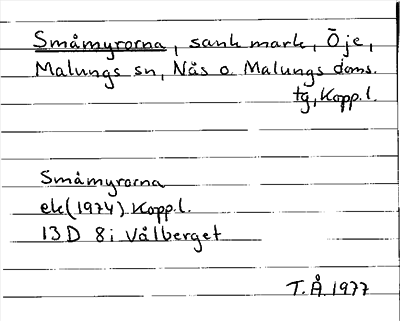 Småmyrorna, sank mark, Öje,
Malungs sn, Nås o. Malungs doms.
tg, Kopp.l.
Småmyrorna
ek (1974) Kopp.l.
13D 8i Vålberget
T.Å. 1977